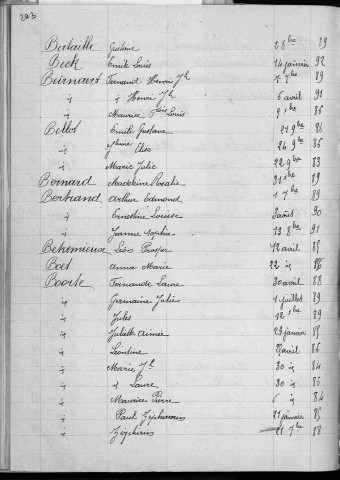 293
Bataille Gustave 2 8bre 89
Beck Emile Louis 14 janvier 92
Fernand Henri Jh 7bre 89
id " Henri Jh 6 avril 91
id Maurice Frois Louis 9bre 86
Bellot Emile Gustave 21 9bre 86
id Elise 24 9bre 86
id Marie Julie 22 9bre 83
Bernard Madeleine Rosalie 21 1bre 89
Bertrand Arthur Edmond 1 7bre 89
id Ernestine Louise août 90
id Jeanne Sophie 19 8bre 91
Betremieux Léon Prosper 12 avril 85
Boet Anna Marie 22 id 86
Boorte Fernande Laure 30 avril 88
id Germaine Julie 1 juillet 89
id Jules 12 1bre 89
id Juliette Aimée 29 janvier 85
id Léontine avril 86
id Marie Jh 30 id 84
id id Laure 30 id 86
id Maurice Pierre 6 id 84
id Paul Zéphirin 21 janvier 85
id Zéphirin 21 7bre 88